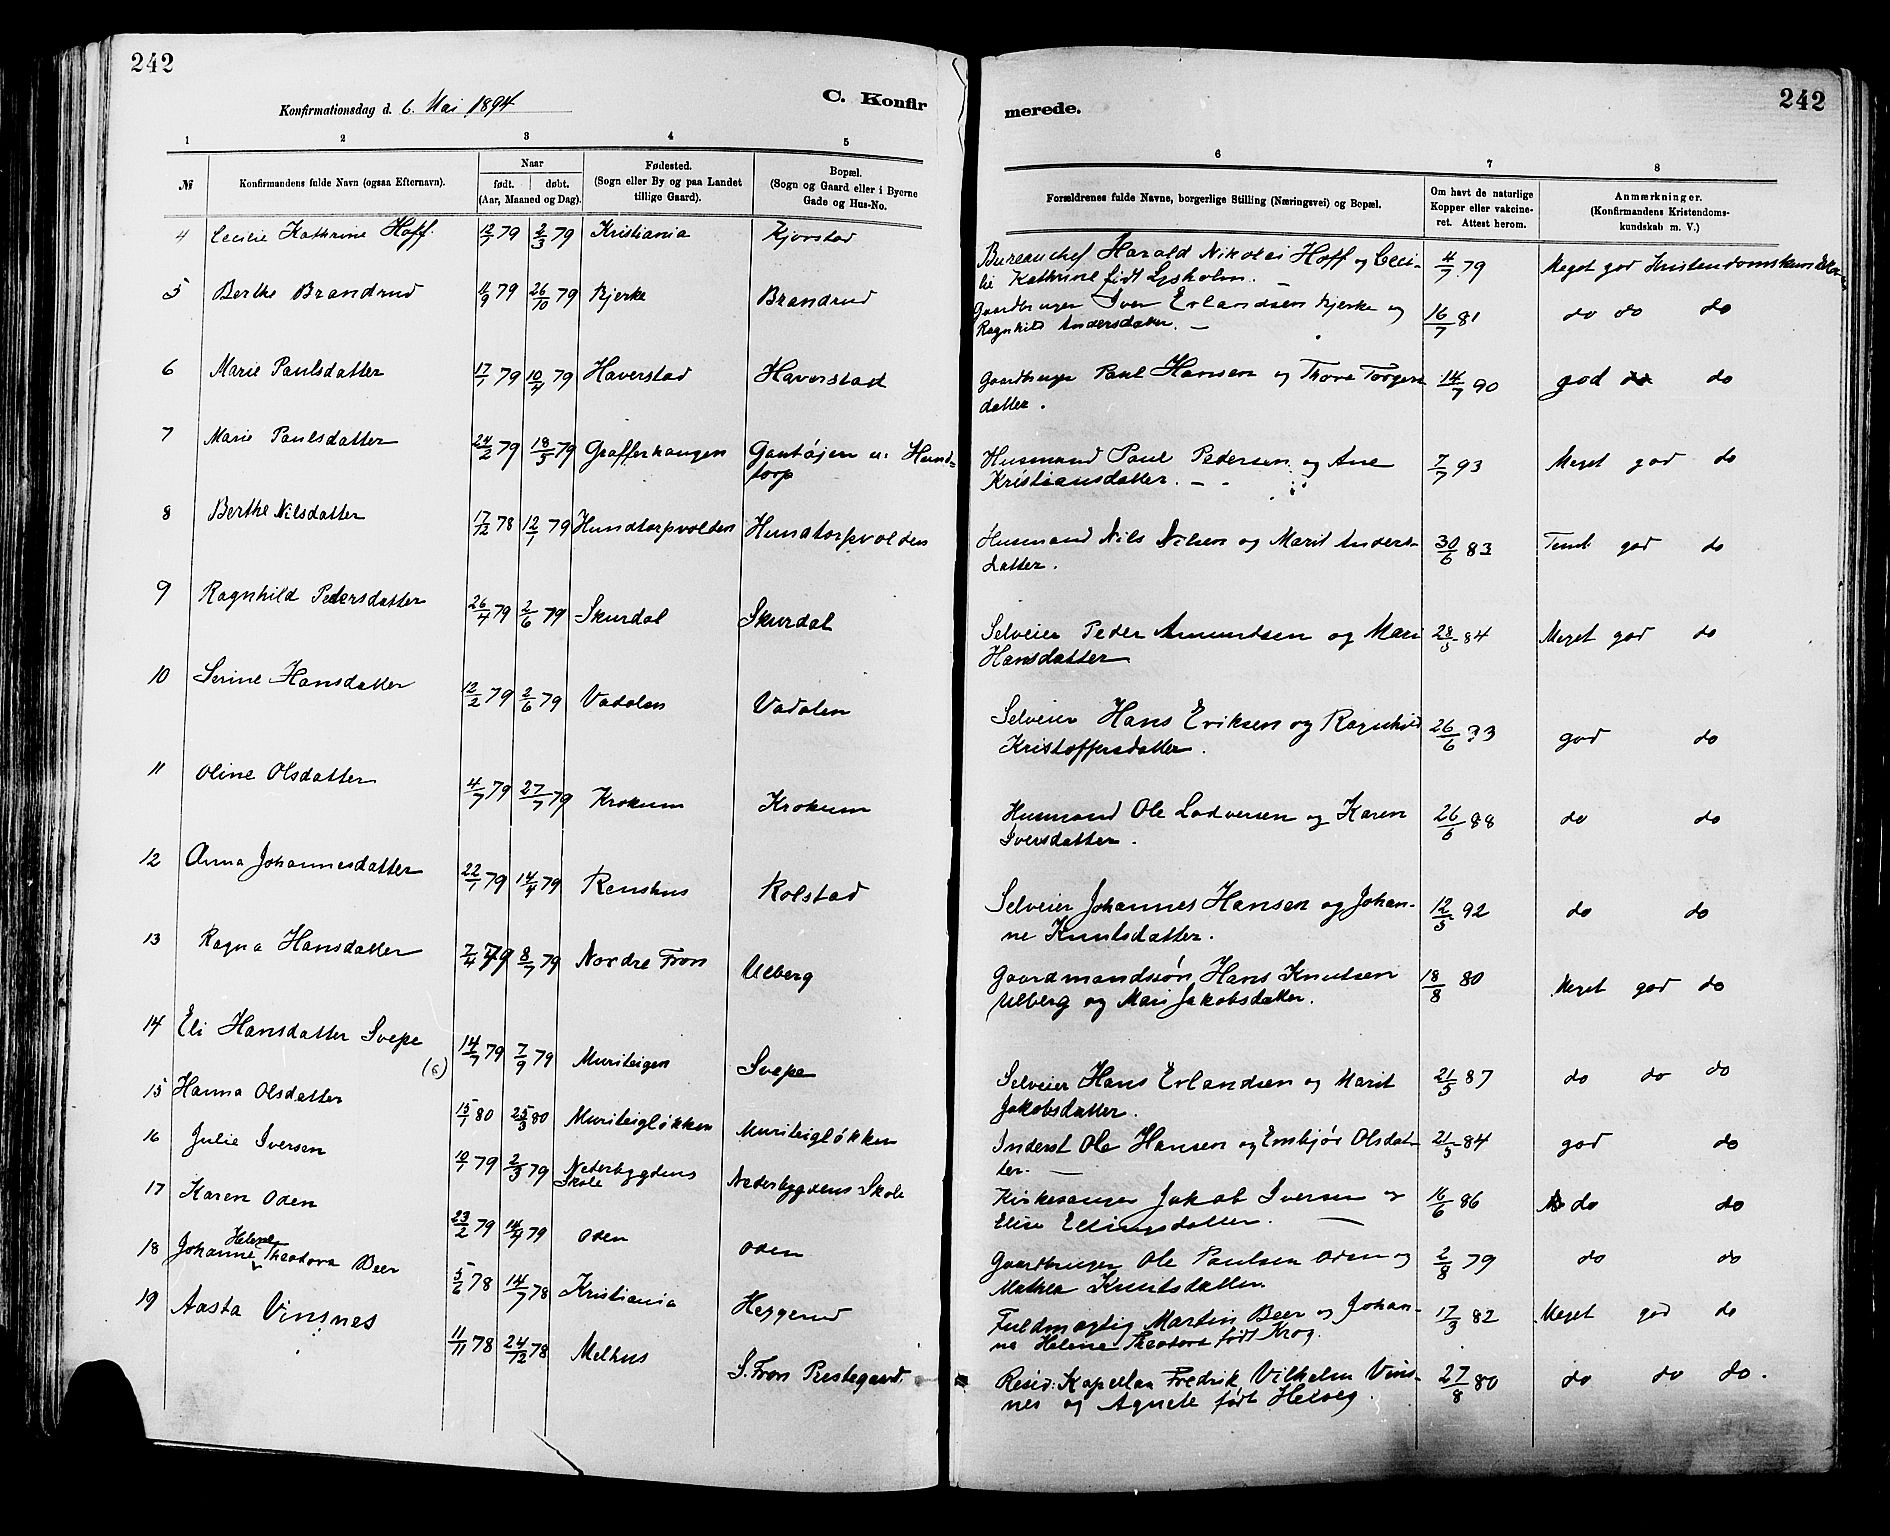 242
Konfirmationsdag d. 6. Mai 1894
C. Konfir
merede.
242
1 2 3 4 5 6 7 8
№
Konfirmandens fulde Navn (ogsaa Efternavn).
Naar
født. døbt.
(Aar, Maaned og Dag).
Fødested.
(Sogn eller By og paa Landet
tillige Gaard).
Bopæl.
(Sogn og Gaard eller i Byerne
Gade og Hus-No.
Forældrenes fulde Navne, borgerlige Stilling (Næringsvei) og Bopæl.
Om havt de naturlige
Kopper eller vakcine-
ret. Attest herom.
Anmærkninger.
(Konfirmandens Kristendoms-
kundskab m. V.)
4 Cecilie Kathrine Hoff. 12/7 79 2/3 79 Kristiania Kjorstad Bureauchef Harald Nikolai Hoff og Ceci- 4/7 79 Meget god Kristendomskundskab
lie Kathrine født Lysholm. —
5 Berthe Brandrud 11/9 79 26/10 79 Kjerke Brandrud Gaardbruger Iver Erlandsen Kjerke og 16/7 81 do do do
Ragnhild Andersdatter. —
6 Marie Paulsdatter 17/1 79 10/4 79 Haverstad Haverstad Gaardbruger Paul Hansen og Thore Torgers 14/7 90 god do do
datter.
7 Marie Paulsdatter 24/2 79 18/5 79 Grafferhaugen Gautøjen u: Hund- Husmand Paul Pedersen og Ane 7/7 93 Meget god do
torp Kristiansdatter. —
8 Berthe Nilsdatter 17/12 78 12/1 79 Hundtorpvolden Hundtorpvolden Husmand Nils Nilsen og Marit Anders- 30/6 83 god do
datter.
9 Ragnhild Pedersdatter 26/4 79 2/6 79 Skurdal Skurdal Selveier Peder Amundsen og Mari 28/5 84 Meget god do
Hansdatter
10 Serine Hansdatter 12/2 79 2/6 79 Vadalen Vadalen Selveier Hans Eriksen og Ragnhild 26/6 93 god do
Kristoffersdatter.
11 Oline Olsdatter 4/7 79 27/7 79 Krokum Krokum Husmand Ole Lodversen og Karen 26/6 88 do do
Iversdatter.
12 Anna Johannesdatter 22/1 79 14/4 79 Renshus Kolstad Selveier Johannes Hansen og Johan- 12/5 92 do do
ne Knutsdatter.
13 Ragna Hansdatter 7/4 79 8/7 79 Nordre Fron Ulberg Gaardmandssøn Hans Knutsen 18/8 80 Meget god do
Ulberg og Mari Jakobsdatter.
14 Eli Hansdatter Svepe 14/7 79 7/9 79 Muriteigen Svepe Selveier Hans Erlandsen og Marit 21/5 87 do do do
Jakobsdatter.
15 Hanna Olsdatter 15/1 80 25/3 80 Muriteigløkken Muriteigløkken Inderst Ole Hansen og Embjør Olsdat- 21/5 84 god do
ter. —
16 Julie Iversen 10/1 79 2/3 79 Nederbygdens Nederbygdens Skole Kirkesanger Jakob Iversen og 16/6 86 do do
Skole Elise Ellingsdatter. —
17 Karen Oden 23/2 79 14/4 79 Oden Oden Gaardbruger Ole Paulsen Oden og 2/8 79 do do
Mathea Knutsdatter.
18 Johanne Helene Theodora Beer 5/6 78 14/7 78 Kristiania Heggerud Fuldmægtig Martin Beer og Johan- 17/3 82 Meget god do
ne Helene Theodora født Krog.
19 Aasta Vinsnes 11/11 78 24/12 78 Melhus S. Fron Prestegaard. Resid: Kapellan Fredrik Vilhelm Vins- 27/8 80 do do do.
nes og Agnete født Helveg.